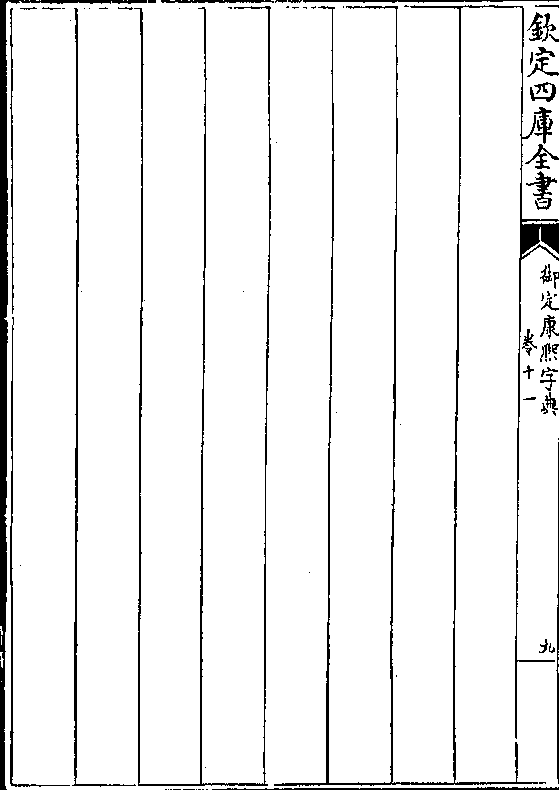 欽定四庫全書
御定康熙字典
卷十一
九